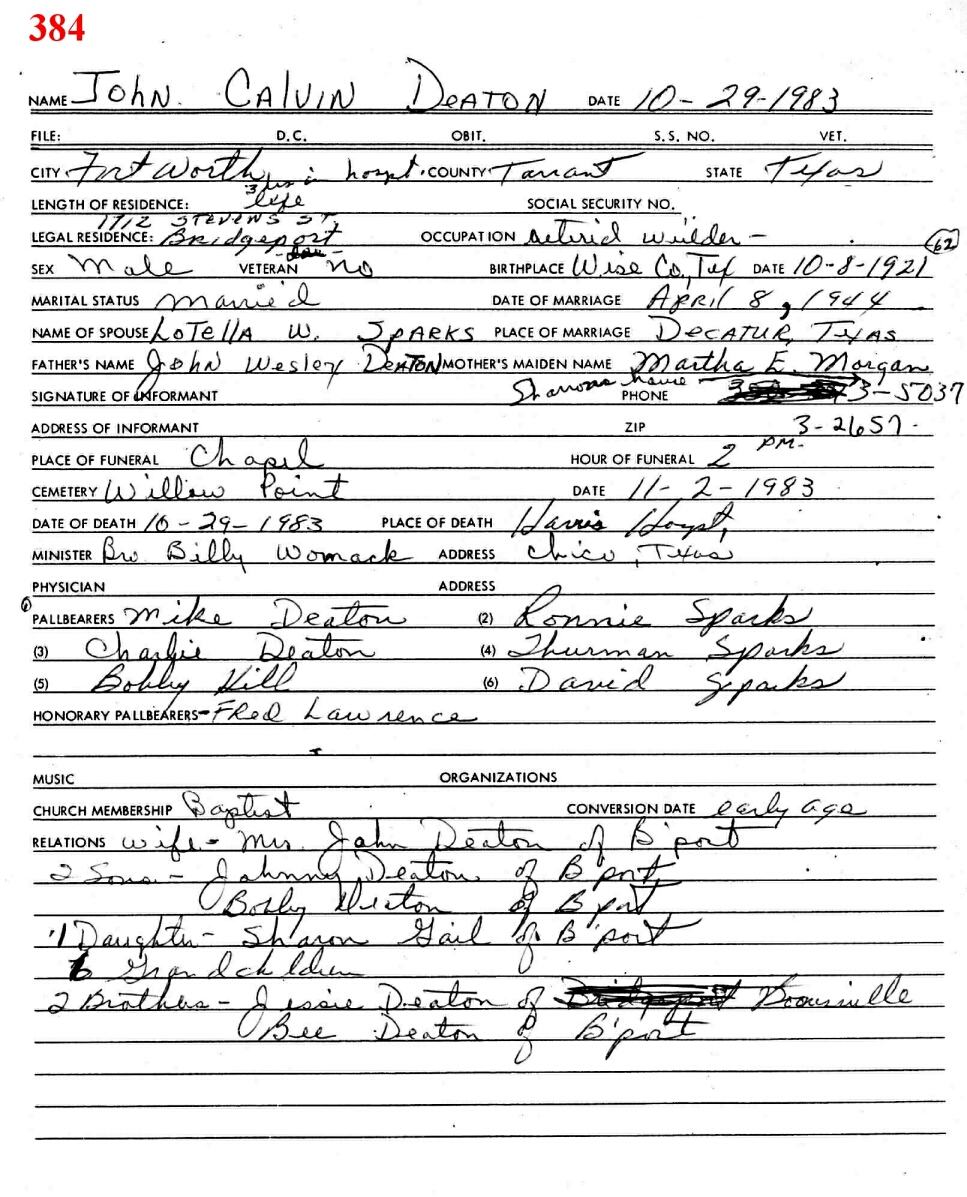 384
NAME JOHN CALVIN DEATON DATE 10-29-1983
FILE: D.C. OBIT. S.S. NO. VET.
CITY Fort Worth, 3 hrs in hospt. COUNTY Tarrant STATE Texas
LENGTH OF RESIDENCE: life SOCIAL SECURITY NO.
1712 STEVENS ST,
LEGAL RESIDENCE: Bridgeport OCCUPATION retirid wilder - 62
SEX Male VETERAN no BIRTHPLACE Wise Co, Tex DATE 10-8-1921
MARITAL STATUS married DATE OF MARRIAGE APRIL 8, 1944
NAME OF SPOUSE LOTELLA W. SPARKS PLACE OF MARRIAGE DECATUR, TEXAS
FATHER'S NAME John Wesley DEATON MOTHER'S MAIDEN NAME Martha E. Morgan
SIGNATURE OF INFORMANT Sharons house PHONE 3-5037
ADDRESS OF INFORMANT ZIP 3-2657-
PLACE OF FUNERAL Chapel HOUR OF FUNERAL 2 PM-
CEMETERY Willow Point DATE 11-2-1983
DATE OF DEATH 10-29-1983 PLACE OF DEATH Harris Hospt,
MINISTER Bro Billy Womack ADDRESS Chico, Texas
PHYSICIAN ADDRESS
PALLBEARERS Mike Deaton (2) Ronnie Sparks
(3) Charlie Deaton (4) Thurman Sparks
(5) Bobby Hill (6) David Sparks
HONORARY PALLBEARERS- FRed Lawrence
MUSIC ORGANIZATIONS
CHURCH MEMBERSHIP Baptist CONVERSION DATE early age
RELATIONS wife - Mrs. John Deaton of B'port
2 Sons - Johnny Deaton of B'port,
Bobby Deaton of B'port
1 Daughter - Sharon Gail of B'port
6 Grandchildren
2 Brothers - Jessie Deaton of Boonsville
Bee Deaton of B'port